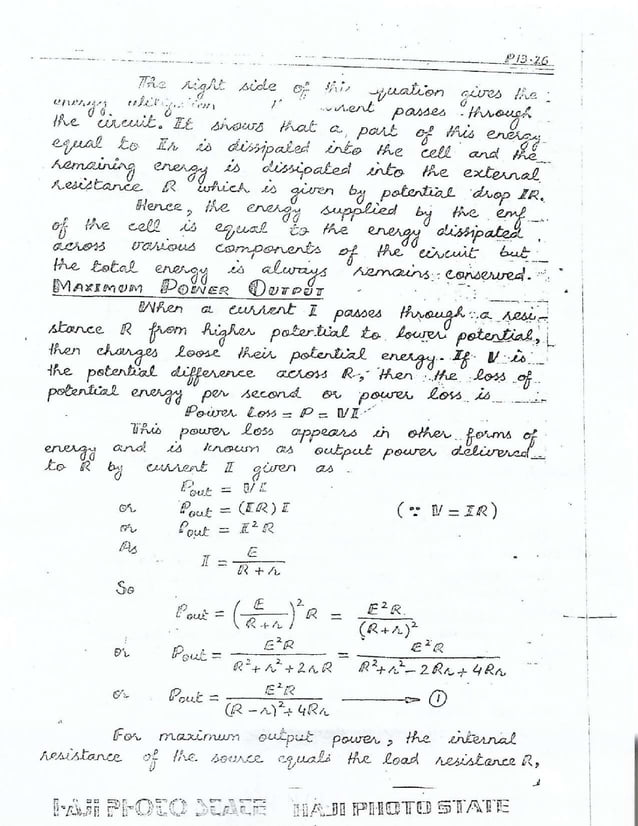 P13-26
The right side of this equation gives the
energy passes through
the circuit. It shows that a part of this energy
equal to Ir is dissipated into the cell and the
remaining energy is dissipated into the external
resistance R which is given by potential drop IR.
Hence, the energy supplied by the emf
of the cell is equal to the energy dissipated
across various components of the circuit but
the total energy is always remains conserved.
MAXIMUM POWER OUTPUT
When a current I passes through a resi-
stance R from higher potertial to lower potential,
then charges loose their potential energy. If V is
the potential difference across R, then the loss of
potential energy per second or power loss is
Power Loss = P = VI
This power loss appears in other forms of
energy and is known as output power delivered
to R by current I given as
Pout = VI
or Pout = (IR) I (∵ V = IR)
or Pout = I²R
As
I = E / (R + r)
So
Pout = (E / (R + r))² R = E²R / (R + r)²
or Pout = E²R / (R² + r² + 2rR) = E²R / (R² + r² - 2Rr + 4Rr)
or Pout = E²R / ((R - r)² + 4Rr) → ①
For maximum output power, the internal
resistance of the source equals the load resistance R,
HAJI PHOTO STATE HAJI PHOTO STATE